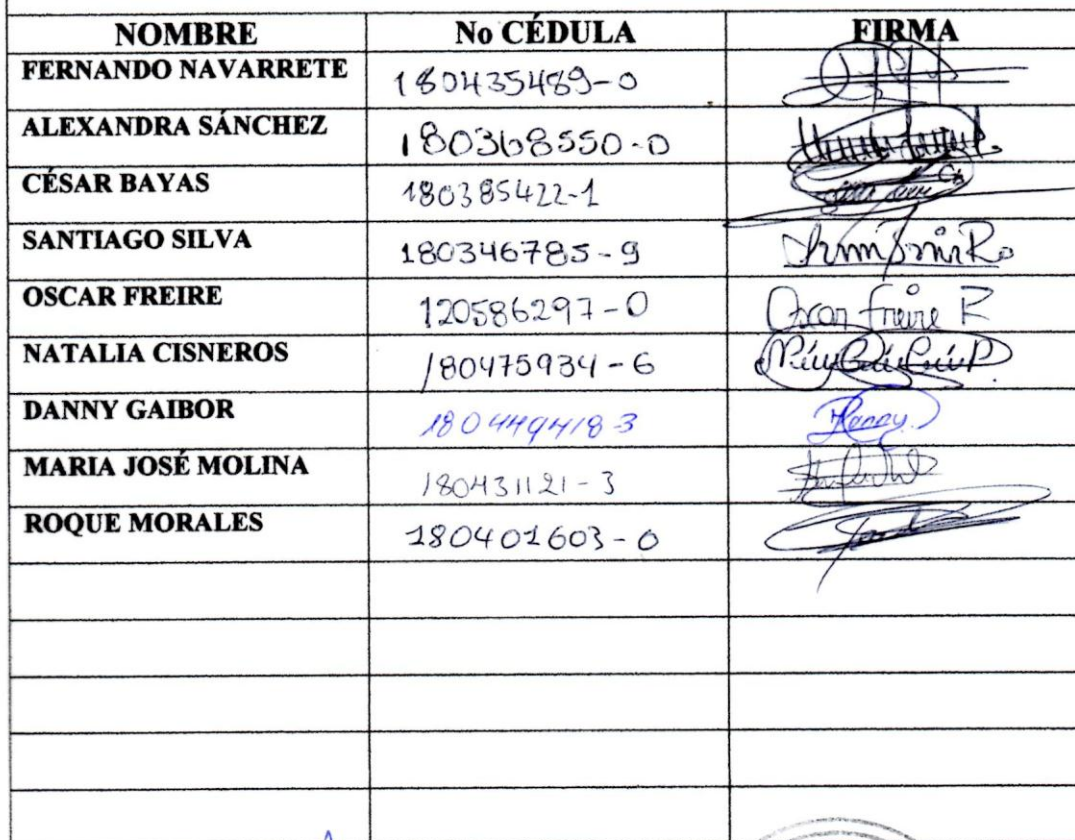 NOMBRE No CÉDULA FIRMA
FERNANDO NAVARRETE 180435489-0
ALEXANDRA SÁNCHEZ 180368550-0
CÉSAR BAYAS 180385422-1
SANTIAGO SILVA 180346785-9
OSCAR FREIRE 120586297-0 Oscar Freire R
NATALIA CISNEROS 180475934-6
DANNY GAIBOR 180449418-3 Danny
MARIA JOSÉ MOLINA 180431121-3
ROQUE MORALES 180401603-0